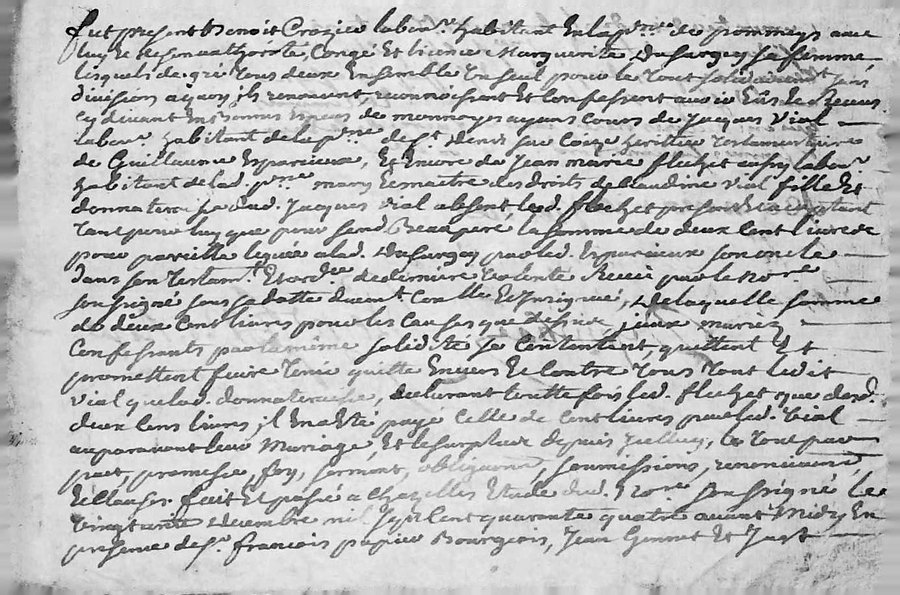 fut present Benoit Crozier labour. habitant En la p.sse de pommeys avec
luy et de son authorité, Congé Et licence Marguerite Dufargey sa femme
lesquels de gré Tous deux Ensemble Un seul pour le Tout solidairement sans
division a quoy ils renoncent, reconnoissent et Confessent avoir Eus et Receus
cy devant En bonnes Especes de monnoyes ayans Cours de Jacques Vial
labour. habitant de la p.sse de St Denis sur Coize heritier Testamentaire
de Guillaume Esparcieux, Et Encore de Jean marie flechet aussy labour.
habitant de lad. p.sse mary Et maitre des droits de Claudine Vial fille Et
donnataire dud. Jacques Vial absent, led. flechet present Et acceptant
Tant pour luy que pour sond. Beaupere la somme de deux Cent livres
pour pareille leguée a lad. Dufargey par led. Esparcieux son oncle
dans son Testam.t Et ord.ce de derniere Volonté Receu par le No.re
soussigné sous sa datte duem.t Controllé Et Insigné, de laquelle somme
de deux Cent livres pour les Causes que dessus, iceux mariez
Confessants par la même solidité se Contentent, quittent Et
promettent faire Tenir quitte Envers Et Contre Tous Tant ledit
Vial que lad. donnataire, declarant touttefois led. flechet que desd.
deux Cens livres, il En a Eté payé Celle de Cent livres par led. Vial
auparavant leur Mariage, Et le surplus depuis Icelluy, Ce Tout par
pact, promesse, foy, serment, obligations, soumissions, renonciations,
Et Clauses. fait Et passé a Chazelles Etude du d. No.re soussigné Le
Vingt decembre mil sept Cent quarante quatre avant Midy En
presence de S.r francois papier Bourgeois, Jean Gonnet Et Just